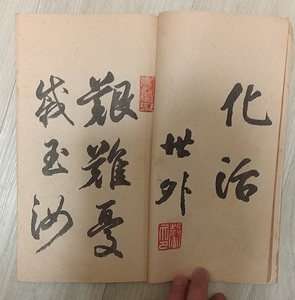 化
世外
艱難憂
戚玉汝